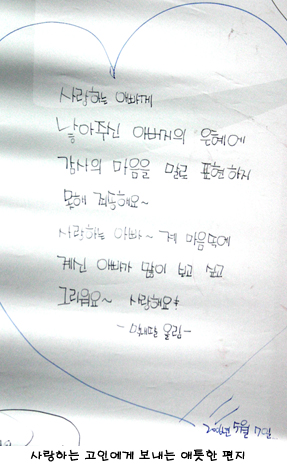 사랑하는 아빠께
낳아주신 아버지의 은혜에
감사의 마음을 말로 표현하지
못해 죄송해요~
사랑하는 아빠~ 제 마음속에
계신 아빠가 많이 보고 싶고
그리워요~ 사랑해요!
- 막내딸 올림 -
5월 17일
사랑하는 고인에게 보내는 애틋한 편지